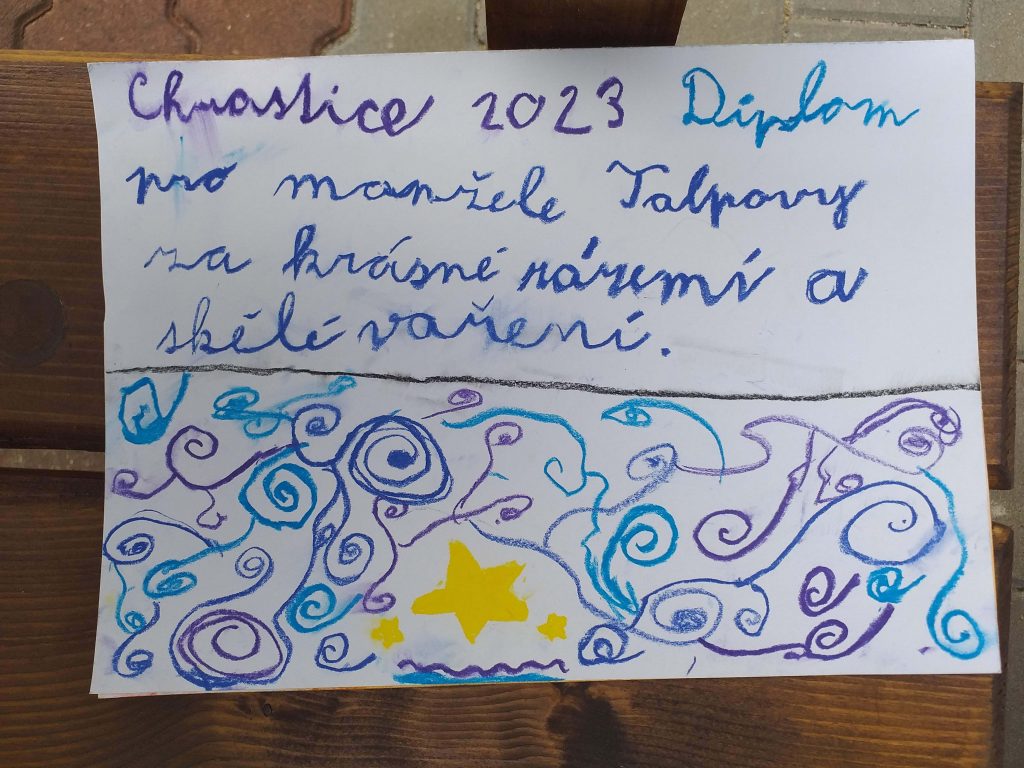 Chrastice 2023 Diplom
pro manžele Talpovy
za krásné zázemí a
skělé vaření.